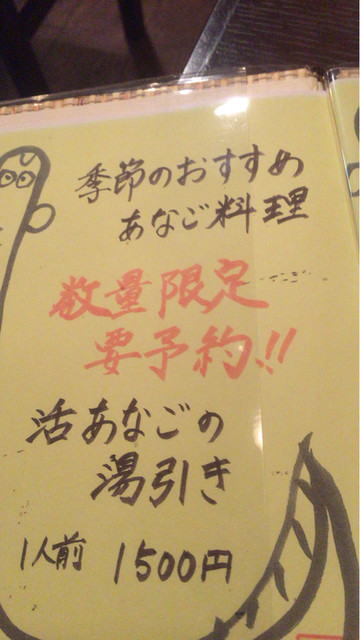 季節のおすすめ
あなご料理
数量限定
要予約!!
活あなごの
湯引き
1人前 1500円